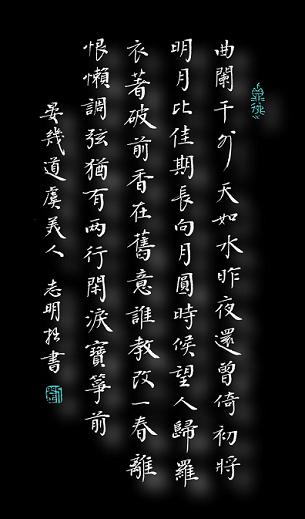 曲闌干外天如水昨夜還曾倚初將
明月比佳期長向月圓時候望人歸羅
衣著破前香在舊意誰教改一春離
恨懶調弦猶有两行閑淚寶箏前
晏幾道虞美人 志明拙書